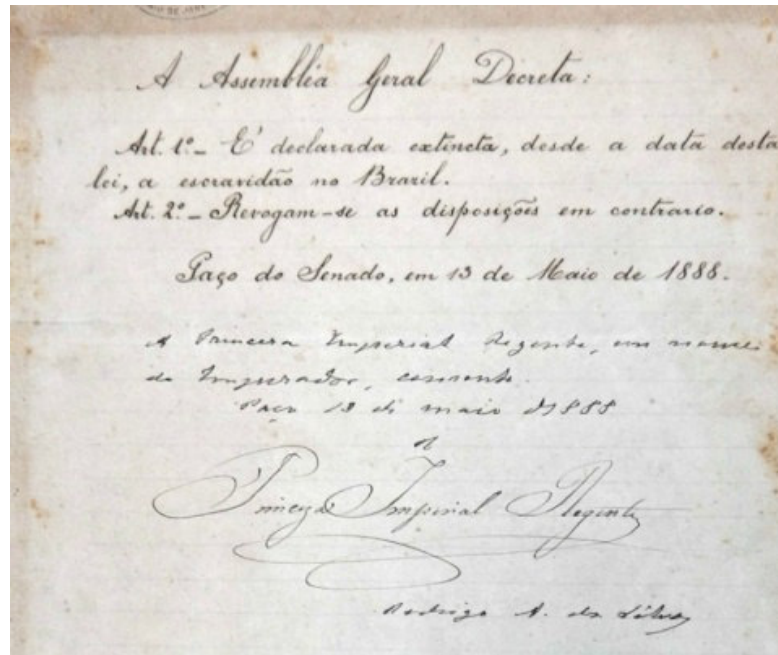 A Assembléa Geral Decreta:
Art. 1º_ E' declarada extincta, desde a data desta
lei, a escravidão no Brazil.
Art. 2º_ Revogam-se as disposições em contrario.
Paço do Senado, em 13 de Maio de 1888.
A Princeza Imperial Regente, em nome
do Imperador, consente.
Paço 13 de maio de 1888
Princeza Imperial Regente
Rodrigo A. da Silva